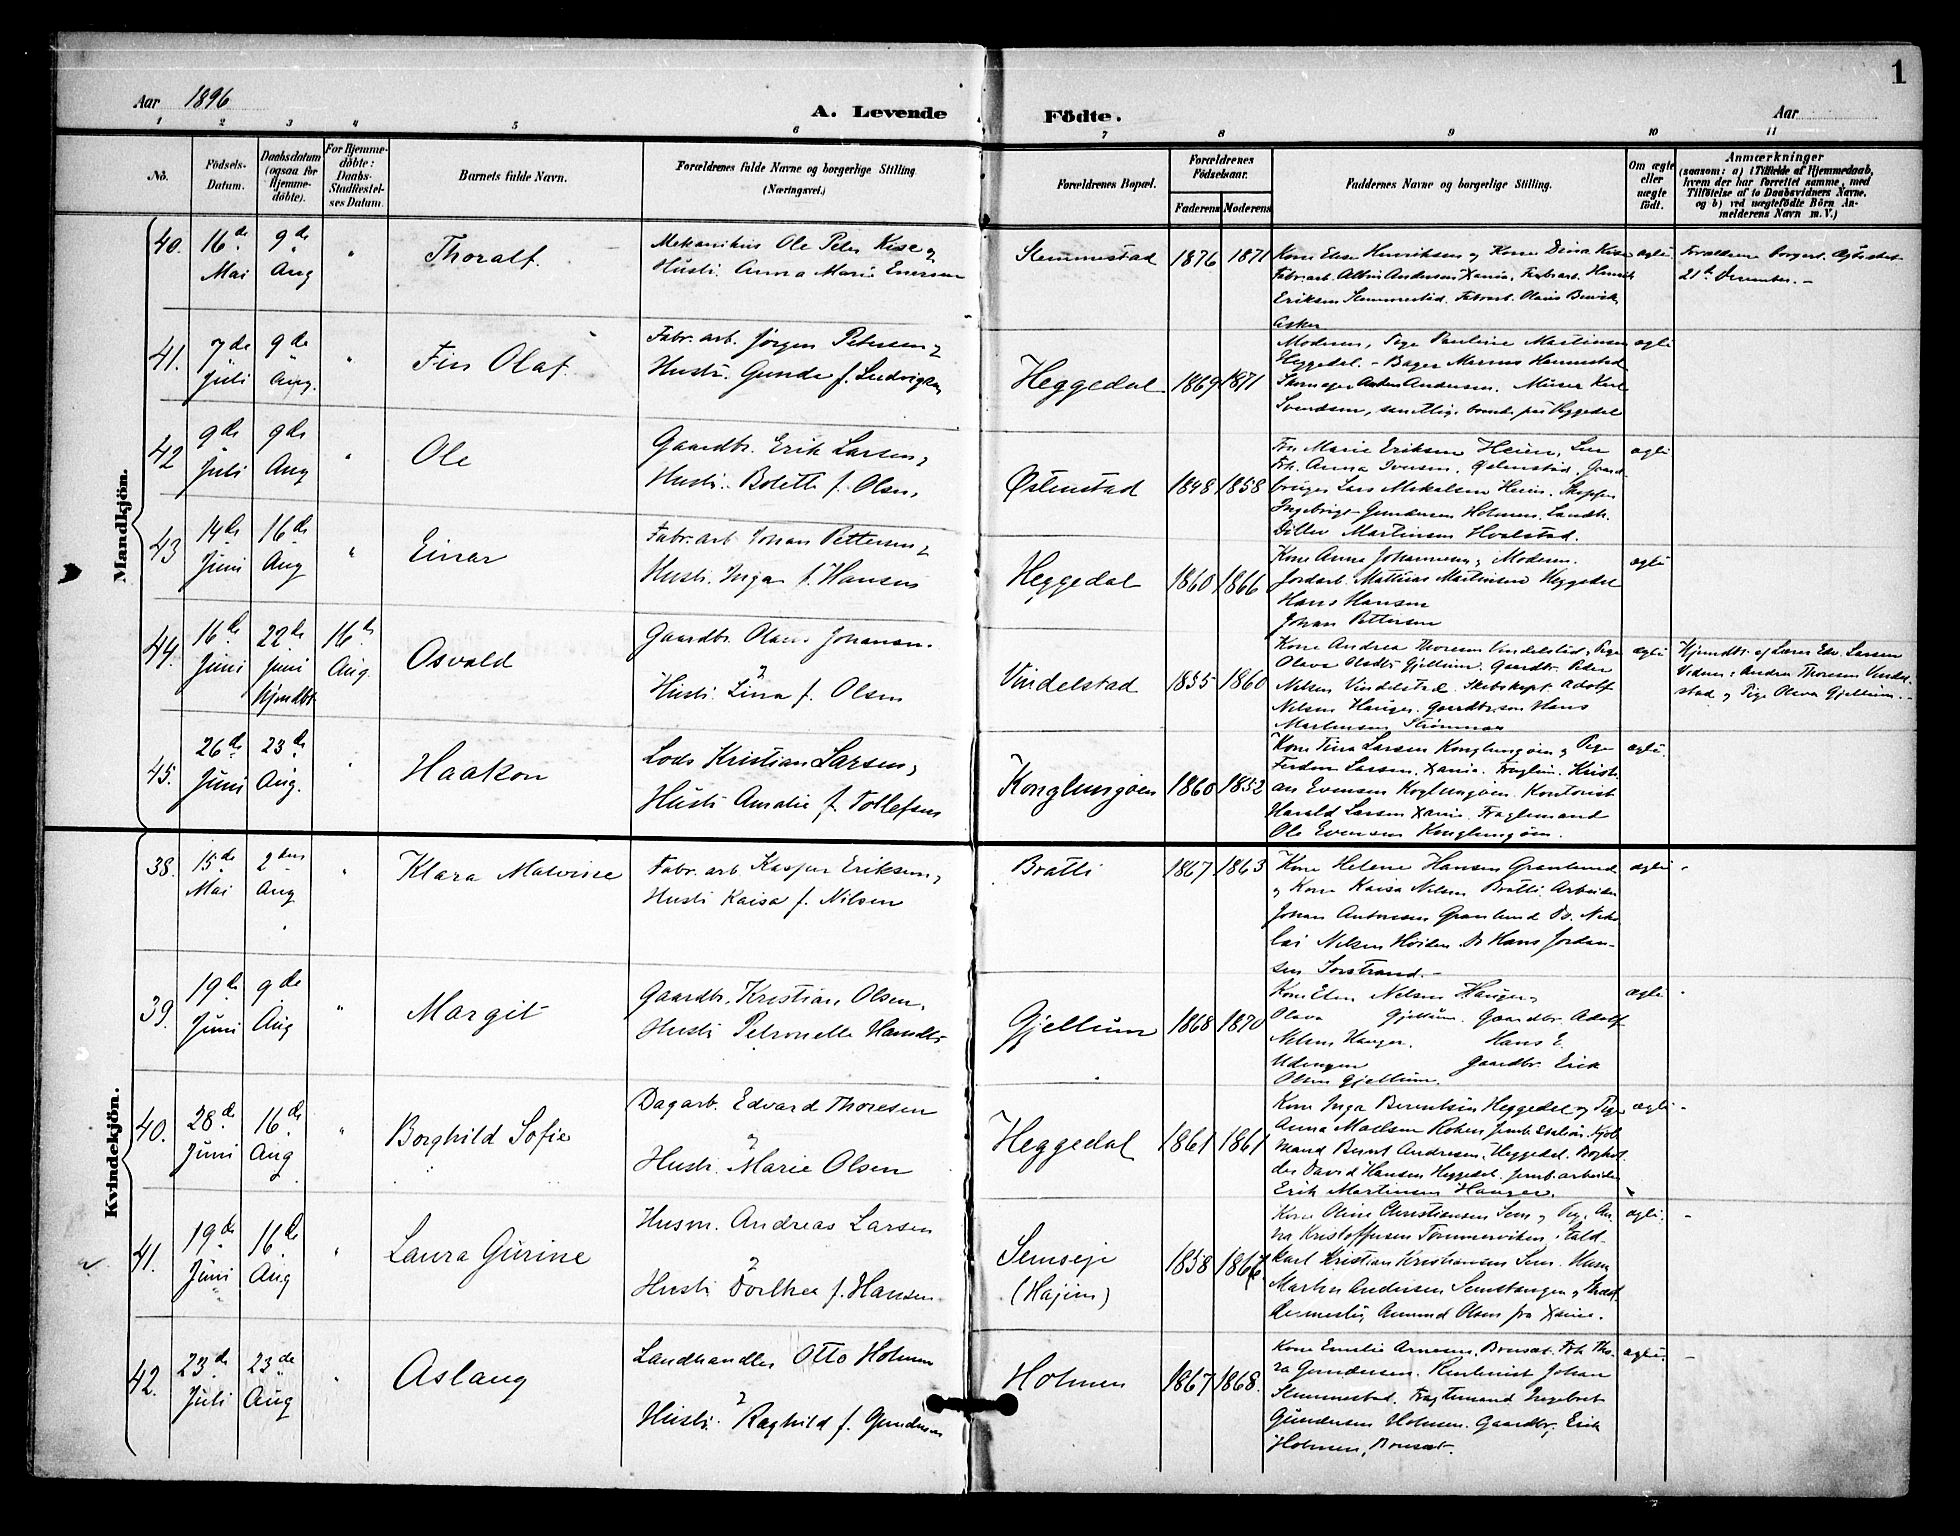 1
Aar 1896
A. Levende Födte.
Aar
1 2 3 4 5 6 7 8 9 10 11
No.
Födsels-Datum.
Daabsdatum (ogsaa for Hjemme-döbte).
For Hjemme-döbte: Daabs-Stadfæstel-ses Datum.
Barnets fulde Navn.
Forældrenes fulde Navne og borgerlige Stilling (Næringsvei.)
Forældrenes Bopæl.
Forældrenes Födselsaar.
Faderens Moderens
Faddernes Navne og borgerlige Stilling.
Om ægte eller uægte födt.
Anmærkninger
(saasom: a) i Tilfælde af Hjemmedaab,
hvem der har forrettet samme, med
Tilföielse af to Daabsvidners Navne,
og b) ved uægtefödte Börn An-
melderens Navn m. V.)
Mandkjön.
40. 16de Mai 9de Aug " Thoralf.
Mekanikus Ole Peter Kise og
Hustr. Anna Marie Enersen
Slemmestad 1876 1871
Kone Else Henriksen og Kone Dina Kise
Fabr.arb. Albin Andersen Xania, Fabr.arb. Henrik
Eriksen Slemmestad. Fabr.arb. Olaus
Asker
ægte
Forældrene borgerl. Ægteviet
21de December. -
41. 7de Juli 9de Aug. " Fin Olaf.
Fabr. arb. Jörgen Petersen og
Hustr. Gunda f. Ludvigsen
Heggedal 1869 1871
Moderen, Pige Pauline Martinsen
Heggedal. - Bager Marius Hannestad
Skomager Anton Andersen. Murer Karl
Svendsen, samtlige boende paa Heggedal
ægte
42 9de Juli 9de Aug " Ole
Gaardbr. Erik Larsen og
Hustr. Bolette f. Olsen
Østenstad 1848 1858
Frk. Marie Eriksen Heien, Sem
Frk. Anna Iversen, Østenstad. Gaard-
bruger Lars Mikalsen Heien.
Ingebrigt Gundersen Holmen. Landh.
Ditlev Martinsen Hvalstad.
ægte
43 14de Juni 16de Aug " Einar
Fabr. arb. Johan Pettersen og
Hustr. Inga f. Hansen
Heggedal 1860 1866
Kone Anna Johannesen, Moderen.
Jordarb. Mathias Martinsen Heggedal
Hans Hansen
Johan Pettersen
ægte
44. 16de Juni 22de Juni hjemdbt 16de Aug. Osvald
Gaardbr. Olaus Johansen.
og
Hustr. Lina f. Olsen
Vindelstad 1855 1860
Kone Andrea Thoresen Vindelstad, Pige
Olava Olsdtr Gjellum. Gaardbr. Peder
Nelsen Vindelstad. Skibskapt. Adolf
Nelsen Hauger. Gaardbr.søn Hans
Martinsen Strømmen
ægte
Hjemdbt. af Lærer Edv. Larsen
Vidner: Andrea Thoresen Vindel-
stad og Pige Olava Gjellum. -
45. 26de Juni 23de Aug. " Haakon
Lods Kristian Larsen og
Hustr Amalie f. Tollefsen
Konglungøen 1860 1852
Kone Tina Larsen Konglungøen og Pige
Larsen. Xania. Kristi-
an Evensen Koglungøen. Kontorist
Harald Larsen Xania. Fraglemand
Ole Evensen Konglungøen.
ægte.
Kvindekjön.
38. 15de Mai 2den Aug " Klara Malvine
Fabr. arb Kaspar Eriksen og
Hustr Kaisa f. Nilsen
Bratli 1867 1863
Kone Helene Hansen Granlund
og Kone Kaisa Nelsen Bratli Arbeider
Johan Antonsen Granlund Do. Niko-
lai Nelsen Høiden Do Hans Jordan-
sen Torstrand. -
ægte -
39. 19de Juni 9de Aug " Margit
Gaardbr. Kristian Olsen,
Hustr Petronelle Hansdtr
Gjellum 1868 1870
Kone Elen Nelsen Hauger,
Olava Gjellum. Gaardbr. Adolf
Nelsen Hauger. Hans E.
Udengen Gaardbr. Erik
Olsen Gjellum.
ægte -
40. 28de Juni 16de Aug " Borghild Sofie
Dagarb. Edvard Thoresen
og
Hustr. Marie Olsen
Heggedal 1861 1861
Kone Inga Berentsen Heggedal og Pige
Anna Madsen Røken Jernb Station. Kjøb
mand Bernt Andresen, Heggedal. Boghol
der David Hansen Heggedal. Jernb.arbeider
Erik Martinsen Hauger.
ægte -
41. 19de Juni 16de Aug " Laura Gurine
Husm. Andreas Larsen
og
Hustr Dorthea f. Hansen.
Semseje
(Hajem)
1858
Kone Oline Christiansen Sem og Pige An-
na Kristoffersen Tømmerviken. Stald.
karl Kristian Kristiansen Sem. Husm
Martin Andersen Semstangen og
Amund Olsen fra Xania.
ægte. -
42. 23de Juli 23de Aug " Aslaug
Landhandler Otto Holmen
og
Hustr. Raghild f. Gundersen
Holmen 1867 1868.
Kone Emilie Arnesen, Bonsæt. Frk. Tho-
ra Gundersen. Johan
Slemmestad. Fragtemand Ingebret
Gundersen Holmen. Gaardbr. Erik
Holmen, Bonsæt.
ægte. -